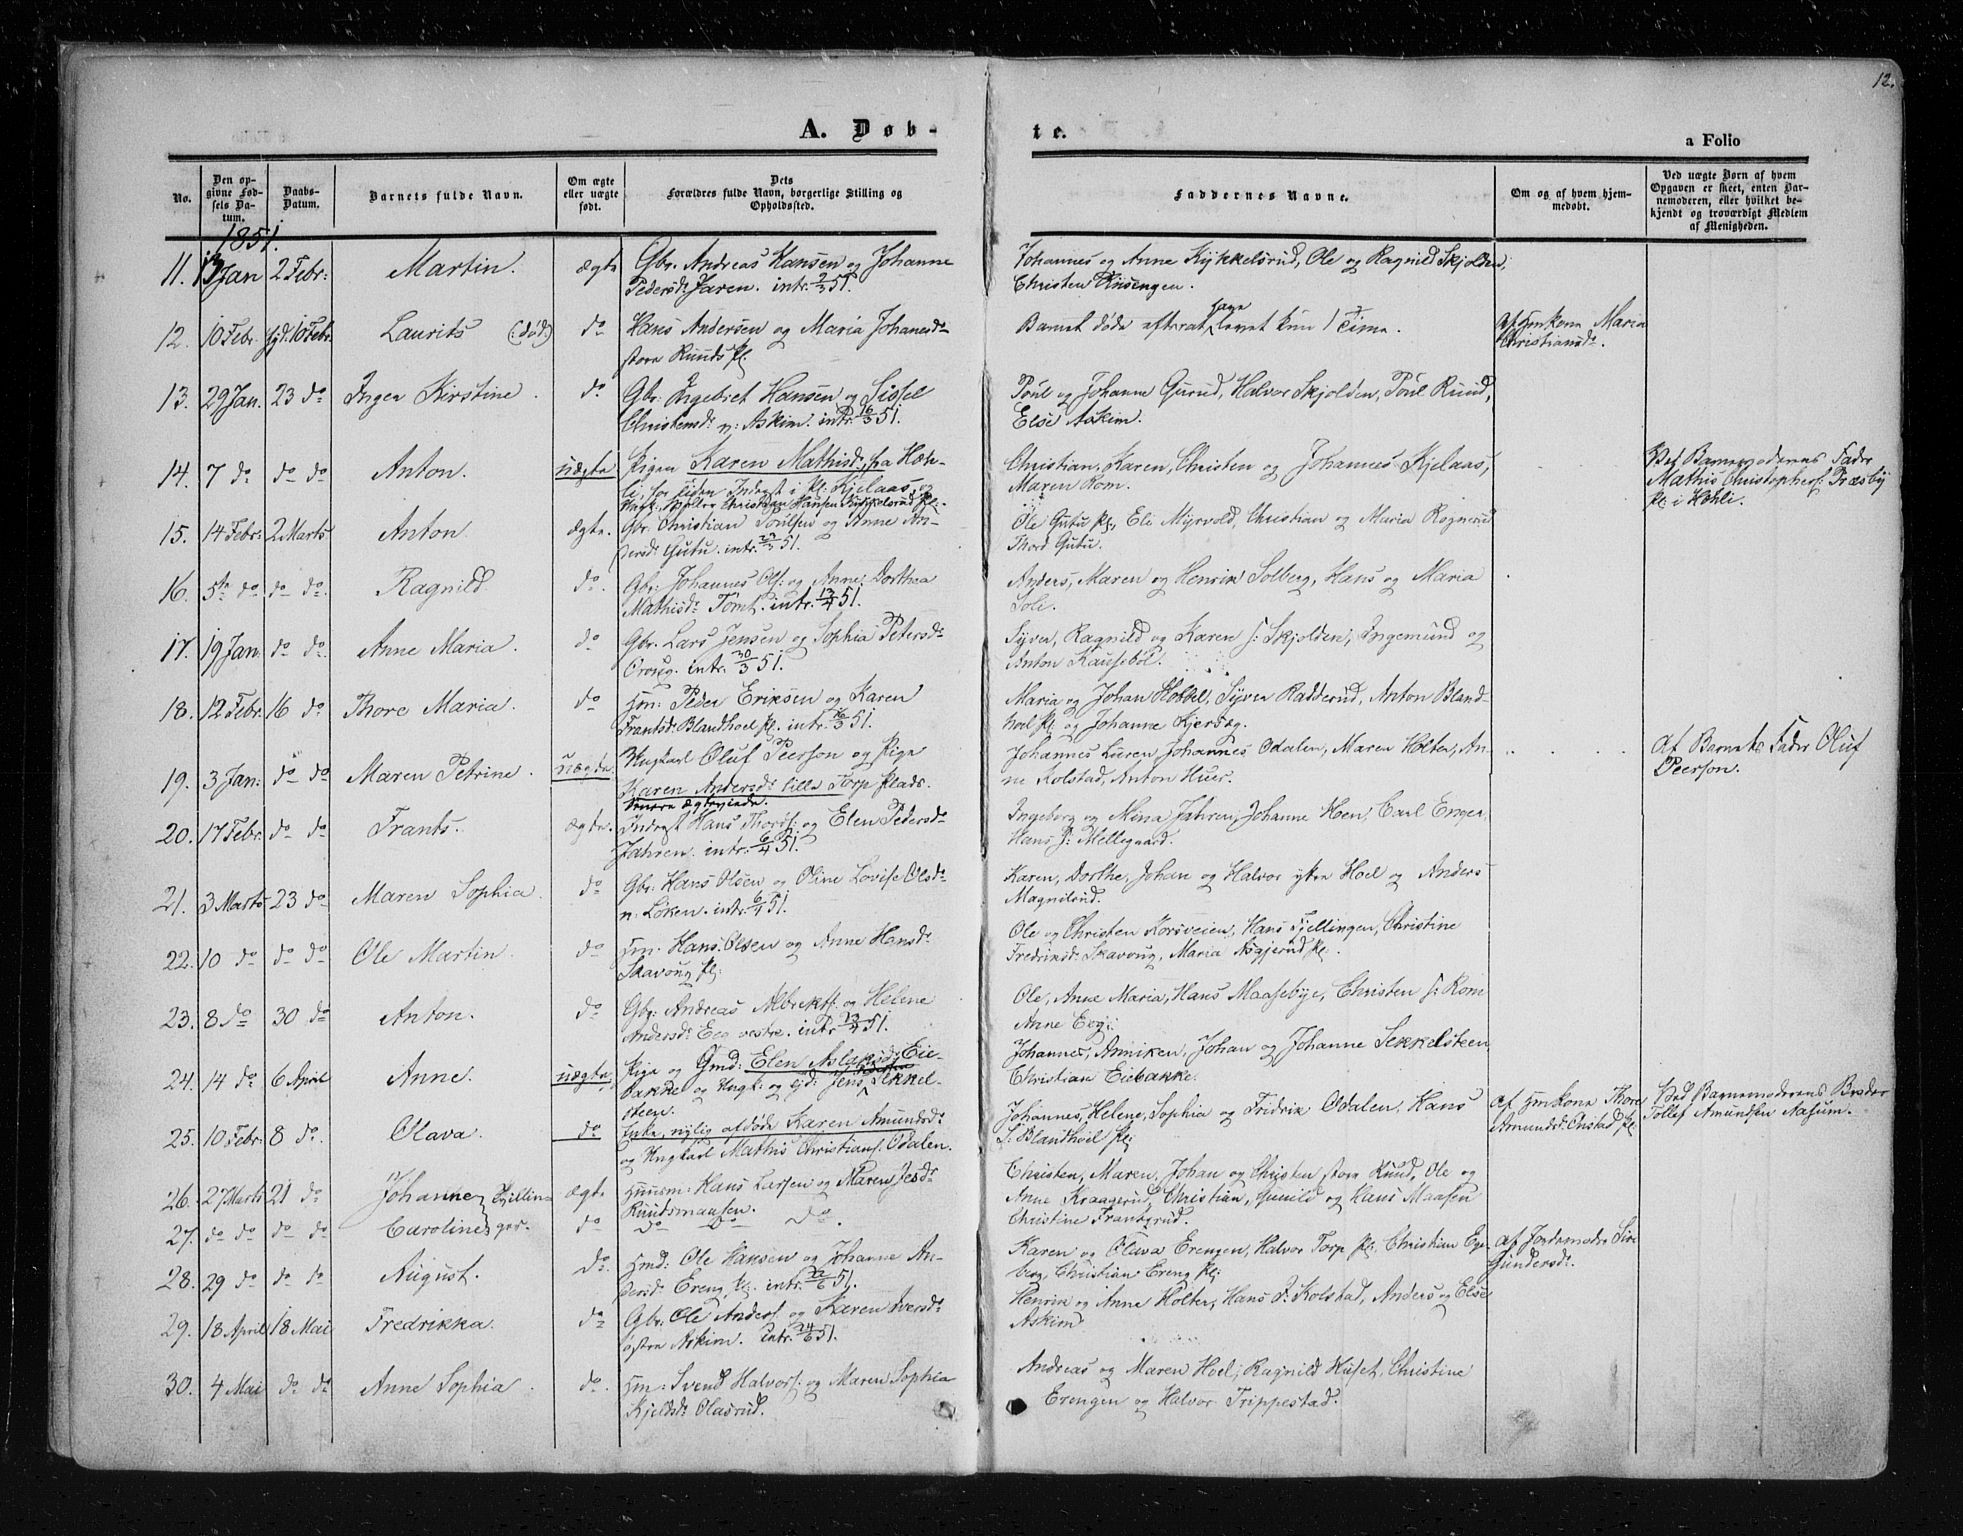 12.
A. Døb-
te.
a Folio
No.
Den op-
givne Fød-
sels Da-
tum.
Daabs-
Datum.
Barnets fulde Navn.
Om ægte
eller uægte
født.
Dets
Forældres fulde Navn, borgerlige Stilling og
Opholdssted.
Faddernes Navne.
Om og af hvem hjem-
medøbt.
Ved uægte Børn af hvem
Opgaven er skeet, enten Bar-
nemoderen, eller hvilket be-
kjendt og troværdigt Medlem
af Menigheden.
1851.
11. Jan 2 Febr: Martin. ægte Gbr. Andreas Hansen og Johanne
Pedersd: Jaren. intr. 2/3 51.
Johannes og Anne Kykkelsrud, Ole og Ragnild Skjolden,
Christen
12. 10 Febr. 10 Febr. Laurits (: død:) do Hans Andersen og Maria Johansd:
store Ruuds pl:
Barnet døde efterat have levet kun 1 Time.
Af Huskone Maria
Christiansd:.
13. 29 Jan. 23 do Inger Kirstine. do. Gbr. Ingebret Hansen og Sissel
Christensd: n: Askim. intr. 16/3 51.
Poul og Johanne Gurud, Halvor Skjolden, Poul Ruud,
Else Askim.
14. 7 do do do Anton. uægte Pigen Karen Mathisd: fra Høh-
li, for Tiden Inderst i pl: Kjelaas, og
Ungk. Christian Hansen Kykkelsrud pl:
Christian, Karen, Christen og Johannes Kjelaas,
Maren Rom.
Ved Barnemoderens Fader
Mathis Christophers: Træsby
pl: i Høhli.
15. 14 Febr: 2 Marts Anton. ægte. Gbr. Christian Poulsen og Anne An-
dersd: Gutu. intr. 51.
Ole Gutu pl:, Eli Myrvold, Christian og Maria Rognerud
Thord Gutu.
16. 5te do do do. Ragnild do. Gbr. Johannes Ols: og Anne Dorthea
Mathisd: Tømt. intr. 13/4 51.
Anders, Maren og Henrik Solberg, Hans og Maria
Soli.
17. 19 Jan. do do. Anne Maria. do Gbr. Lars Jensen og Sophia Petersd:
intr. 30/3 51.
Syver, Ragnild og Karen s: Skjolden, Ingemund og
Anton Kausebøl.
18. 12 Febr. 16 do Thore Maria. do Hm: Peder Eriksen og Karen
Frantsd: Blandhoel pl. intr. 16/3 51.
Maria og Johan Hobbel, Syver Radderud, Anton Bland-
hoel pl: og Johanne Kjersæg.
19. 3 Jan: do do Maren Petrine. uægte. Ungkarl Oluf Peerson og Pige
Karen Andersd: lille Torp Plads.
Senere ægteviede.
Johannes Luren, Johannes Odalen, Maren Holter, An-
ne Kolstad, Anton Huer.
Af Barnets Fader Oluf
Peerson.
20. 17 Febr. do do Frants. ægte. Inderst Hans Thors: og Elen Pedersd:
Jahren. intr. 6/4 51.
Ingeborg og Mina Jahren, Johanne Hoen, Carl Enger,
Hans s: Mellegaard.
21. 3 Marts 23 do Maren Sophia. do Gbr: Hans Olsen og Oline Lovise Olsd:
n: Løken. intr. 6/4 51.
Karen, Dorthe, Johan og Halvor ytre Hoel og Anders
Magnilrud.
22. 10 do do do Ole Martin. do Hm: Hans Olsen og Anne Hansd:
Skavoug pl:
Ole og Christen Korsveien, Hans Fjellingen, Christine
Fredriksd: Skavoug, Maria Asgjerud pl:.
23. 8 do 30 do Anton. do Gbr: Andreas Albrekts: og Helene
Andersd: Eeg vestre. intr. 13/4 51.
Ole, Anne Maria, Hans Maasebye, Christen s: Rom
Anne Eeg.
24. 14 do 6 April Anne. uægte, Pige og Gmd: Elen Aslaksd: Eie-
bakke og Ungk: og Gjd: Jens Sekkel-
steen.
Johannes, Anniken, Johan og Johanne Sekkelsteen,
Christian Eiebakke.
25. 10 Febr. 8 do. Olava. do Enke, nylig afdøde Karen Amundsd:
og Ungkarl Mathis Christians: Odalen.
Johannes, Helene, Sophia og Fridrik Odalen, Hans
s: Blandhoel pl:
Af Huskone Thore
Amundsd: Onstad pl:
Ved Barnemoderens Broder
Tollef Amundsen Nasum.
26. 27 Marts 21 do Johanne Tvillin- ægte Huusm: Hans Larsen og Maren Jesd:
Ruudsmausen.
Christen, Maren, Johan og Christen store Ruud, Ole og
Anne Kraagerud, Christian, Gunild og Hans Maasen
Christine Frantsrud.
27. do do do do Caroline ger. do Do Do Do.
28. 29 do do do August. do. Hmd: Ole Hansen og Johanne An-
dersd: Ereng pl: intr. 22/6 51.
Karen og Olava Erengen, Halvor Torp pl:, Christian Ege-
berg, Christian Ereng pl:
Af Jordemoder Siri
Gundersd:.
29. 18 April 18 Mai Fredrikka. do Gbr: Ole Anders: og Karen Iversd:
østre Askim. intr. 24/6 51.
Henrik og Anne Holter, Hans s: Kolstad, Anders og Else
Askim
30. 4 Mai do do Anne Sophia. do. Hm: Svend Halvors: og Maren Sophia
Kjeldsd: Olasrud.
Andreas og Maren Hoel, Ragnild Huset, Christine
Erengen og Halvor Trippestad.